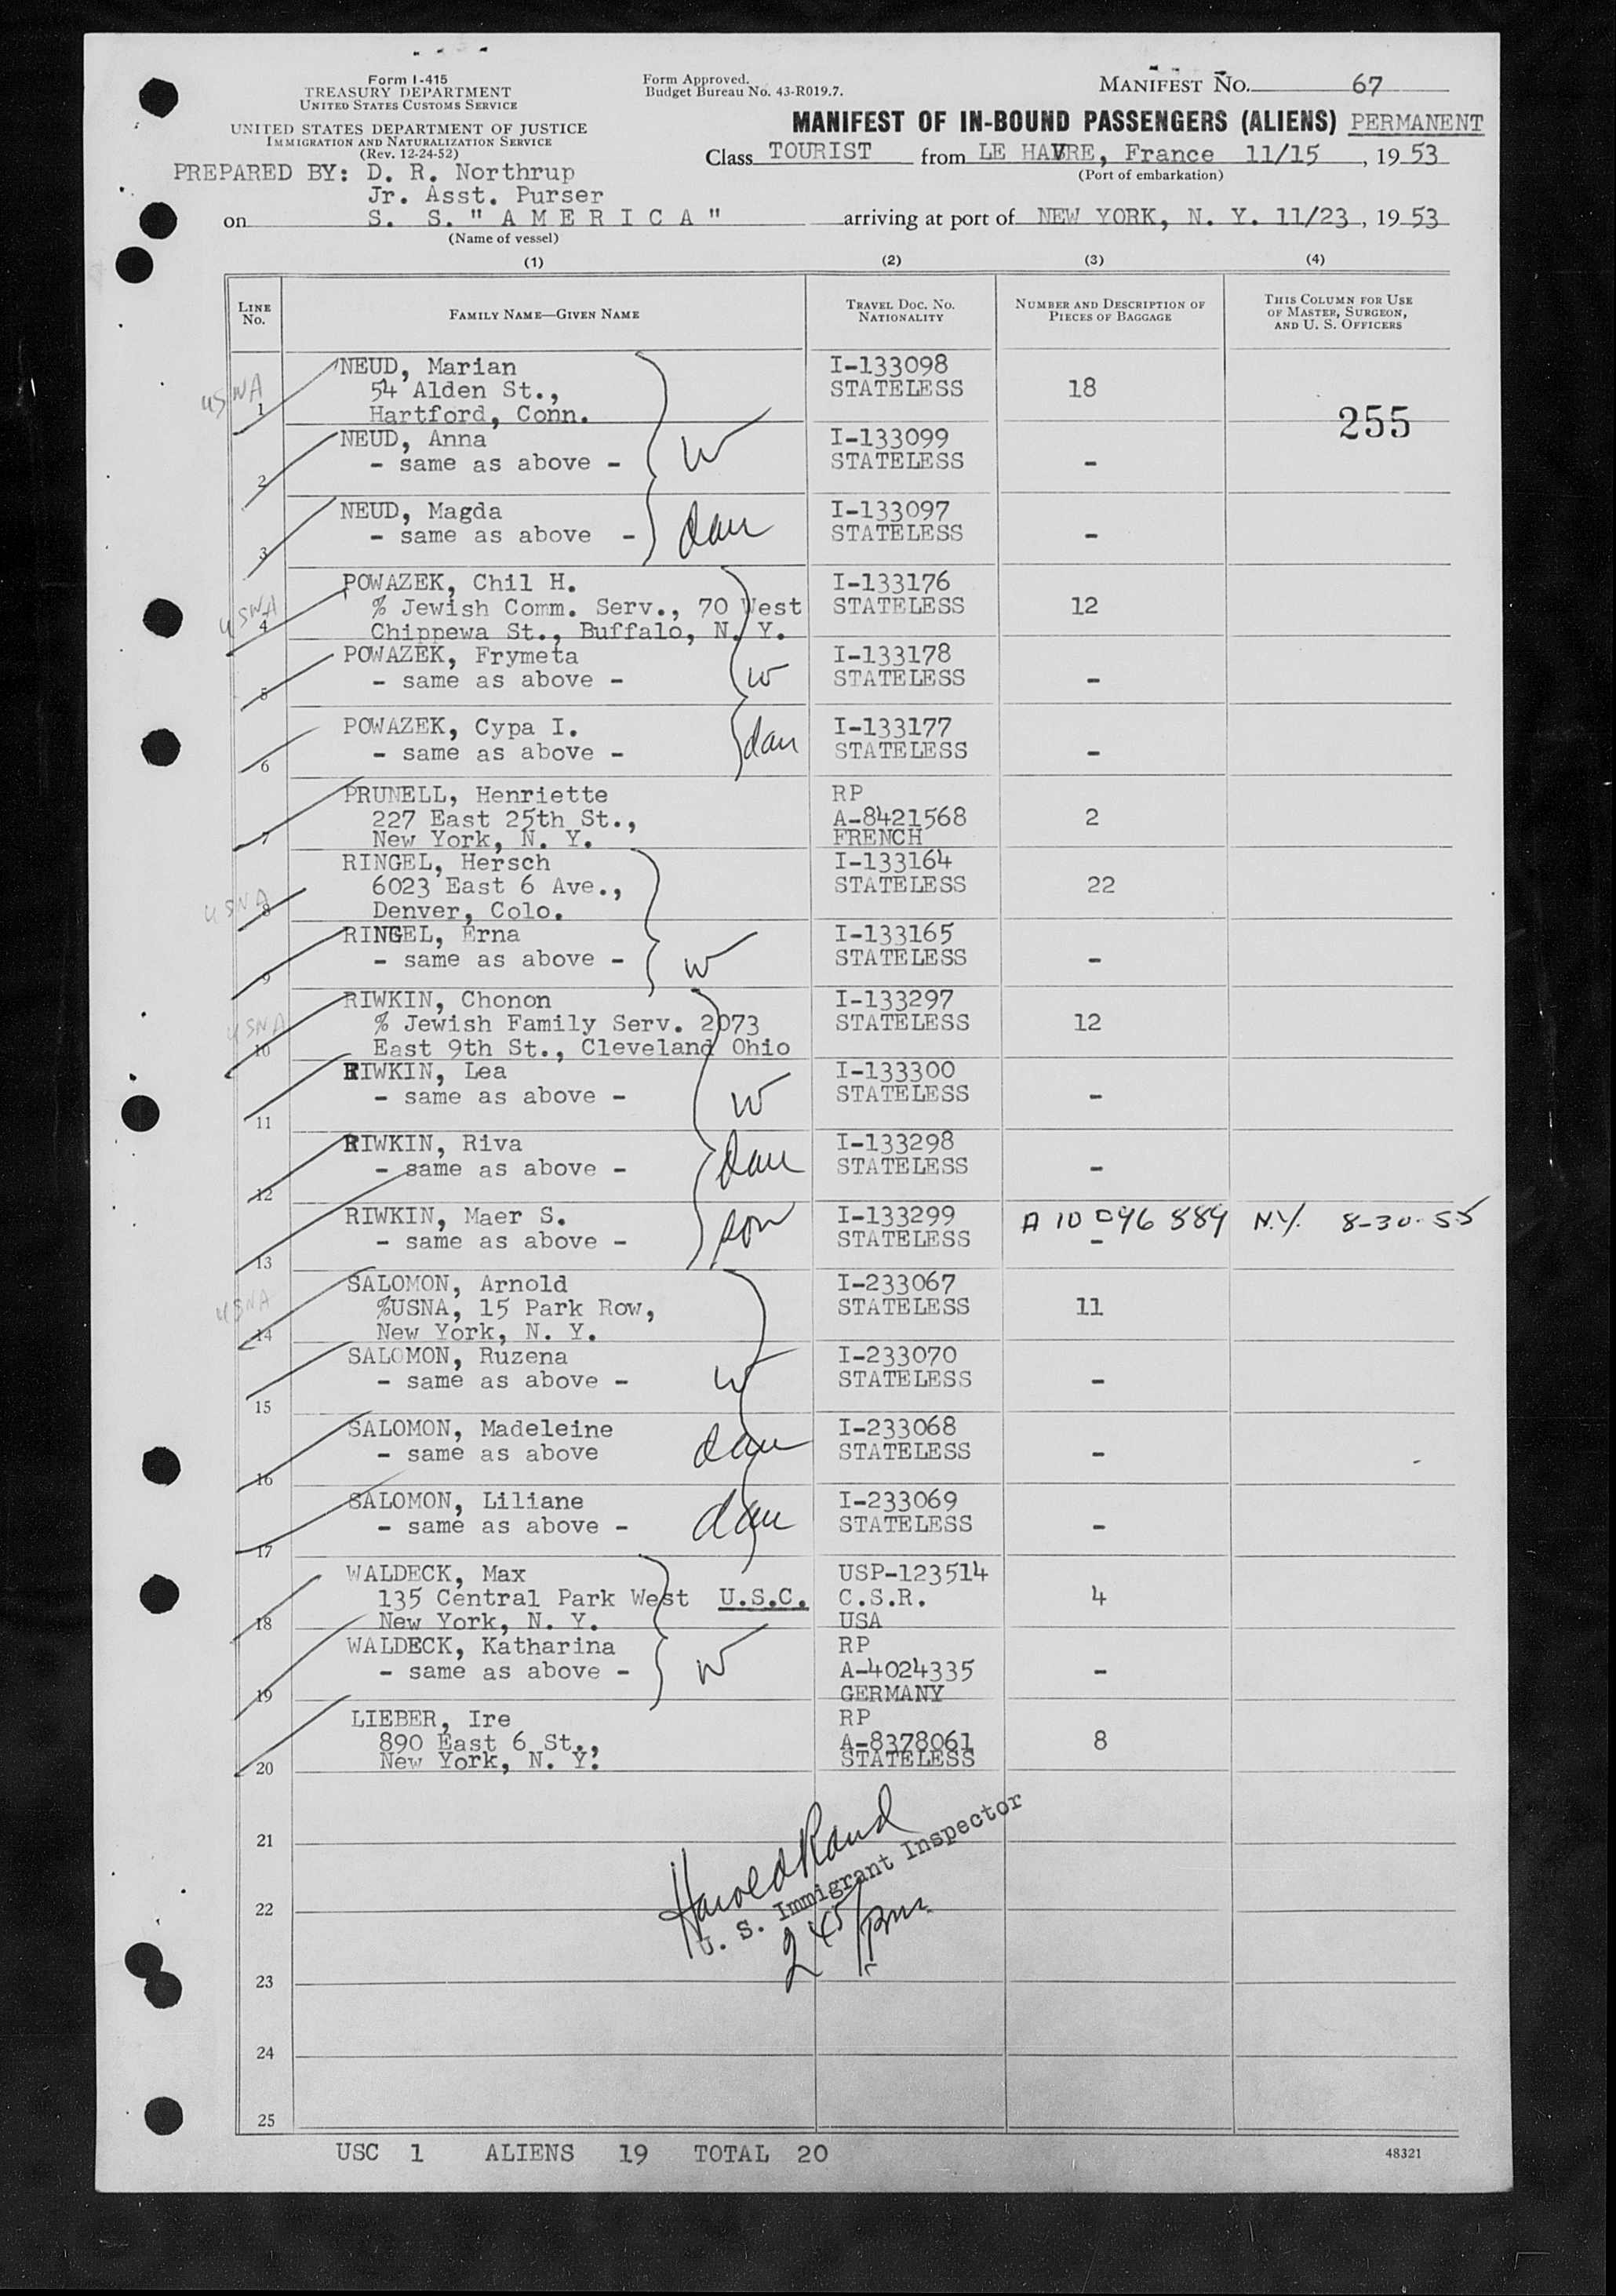 Form I-415
TREASURY DEPARTMENT
UNITED STATES CUSTOMS SERVICE
UNITED STATES DEPARTMENT OF JUSTICE
IMMIGRATION AND NATURALIZATION SERVICE
(Rev. 12-24-52)
Form Approved.
Budget Bureau No. 43-R019.7.
MANIFEST NO. 67
MANIFEST OF IN-BOUND PASSENGERS (ALIENS) PERMANENT
Class TOURIST from LE HAVRE, France 11/15, 19 53
(Port of embarkation)
PREPARED BY: D. R. Northrup
Jr. Asst. Purser
on S. S. "A M E R I C A" arriving at port of NEW YORK, N. Y. 11/23, 19 53
(Name of vessel)
(1) (2) (3) (4)
LINE No. FAMILY NAME—GIVEN NAME TRAVEL DOC. NO. NATIONALITY NUMBER AND DESCRIPTION OF PIECES OF BAGGAGE THIS COLUMN FOR USE OF MASTER, SURGEON, AND U. S. OFFICERS
NEUD, Marian I-133098
USNA 54 Alden St., STATELESS 18
1 Hartford, Conn. 255
NEUD, Anna I-133099
- same as above - W STATELESS -
2
NEUD, Magda I-133097
- same as above - dau STATELESS -
3
POWAZEK, Chil H. I-133176
USNA % Jewish Comm. Serv., 70 West STATELESS 12
4 Chippewa St., Buffalo, N. Y.
POWAZEK, Frymeta I-133178
- same as above - W STATELESS -
5
POWAZEK, Cypa I. I-133177
- same as above - dau STATELESS -
6
PRUNELL, Henriette RP
227 East 25th St., A-8421568 2
7 New York, N. Y. FRENCH
RINGEL, Hersch I-133164
USNA 6023 East 6 Ave., STATELESS 22
8 Denver, Colo.
RINGEL, Erna I-133165
- same as above - W STATELESS -
9
RIWKIN, Chonon I-133297
USNA % Jewish Family Serv. 2073 STATELESS 12
10 East 9th St., Cleveland Ohio
RIWKIN, Lea I-133300
- same as above - W STATELESS -
11
RIWKIN, Riva I-133298
- same as above - dau STATELESS -
12
RIWKIN, Maer S. son I-133299 A 10 096 889 N.Y. 8-30-55
- same as above - STATELESS -
13
SALOMON, Arnold I-233067
USNA %USNA, 15 Park Row, STATELESS 11
14 New York, N. Y.
SALOMON, Ruzena I-233070
- same as above - W STATELESS -
15
SALOMON, Madeleine I-233068
- same as above dau STATELESS -
16
SALOMON, Liliane I-233069
- same as above - dau STATELESS -
17
WALDECK, Max USP-123514
135 Central Park West U.S.C. C.S.R. 4
18 New York, N. Y. USA
WALDECK, Katharina RP
- same as above - W A-4024335 -
19 GERMANY
LIEBER, Ire RP
890 East 6 St., A-8378061 8
20 New York, N. Y. STATELESS
21
Harold Rand
U. S. Immigrant Inspector
22
2 45/pm
23
24
25
USC 1 ALIENS 19 TOTAL 20
48321